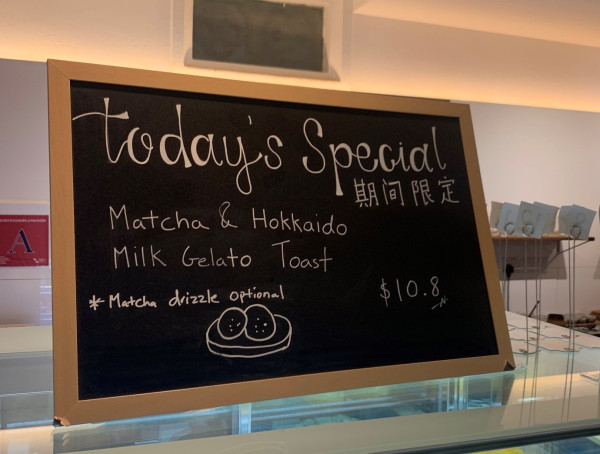 today's Special
期间限定
Matcha & Hokkaido
Milk Gelato Toast
* Matcha drizzle optional
$10.8
A